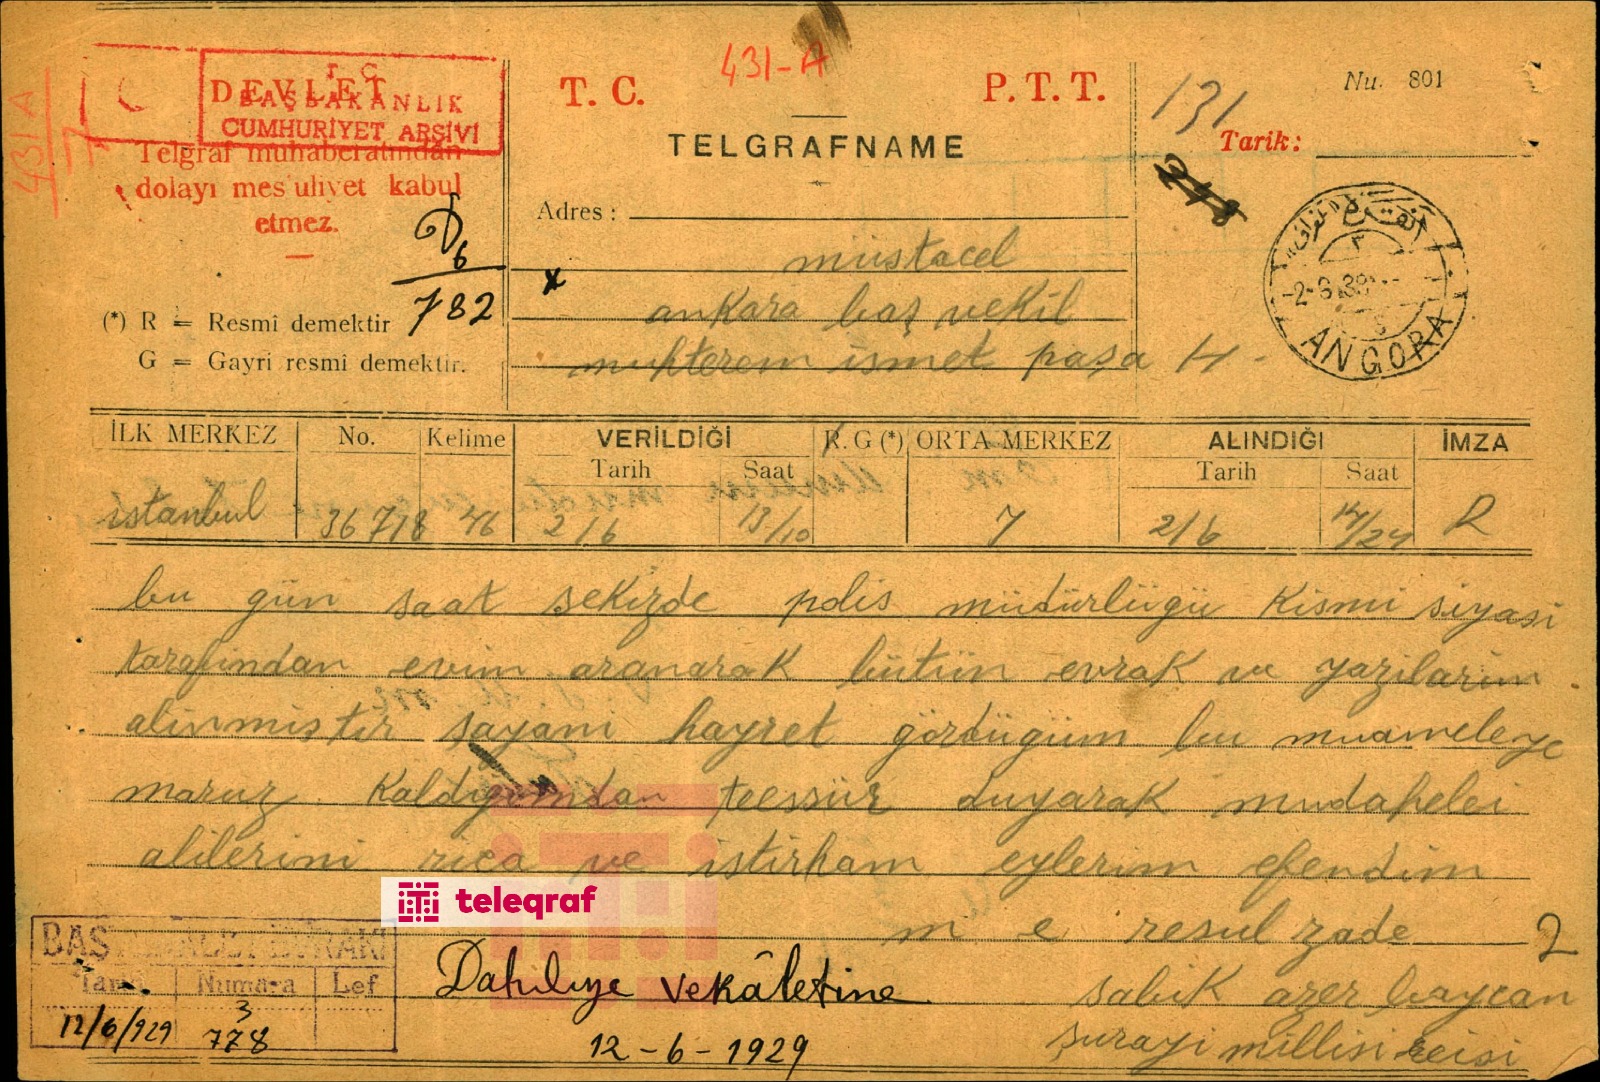 431-A
431 A
17
T C
BAŞBAKANLIK
CUMHURİYET ARŞİVİ
DEVLET
Telgraf muhaberatından
dolayı mes'uliyet kabul
etmez.
(*) R = Resmî demektir
G = Gayri resmî demektir.
6
782
T. C. P. T. T.
TELGRAFNAME
Adres :
müstacel
x ankara baş vekil
muhterem ismet paşa H -
131
Nu. 801
Tarik:
248
ANGORA
İLK MERKEZ No. Kelime VERİLDİĞİ R. G (*) ORTA MERKEZ ALINDIĞI İMZA
Tarih Saat Tarih Saat
istanbul 36718 46 2/6 13/10 7 2/6 14/24 R
bu gün saat sekizde polis müdürlügü Kismi siyasi
tarafindan evim aranarak bütün evrak ve yazilarim
alinmistir sayani hayret gördügüm bu muameleye
maruz kaldigimdan teessür duyarak mudahelei
alilerini rica ve istirham eylerim efendim
m e resul zade 2
sabik azer baycan
şurayi millisi reisi
teleqraf
Dahiliye vekâletine
12-6-1929
Tarih Numara Lef
12/6/929 3
778